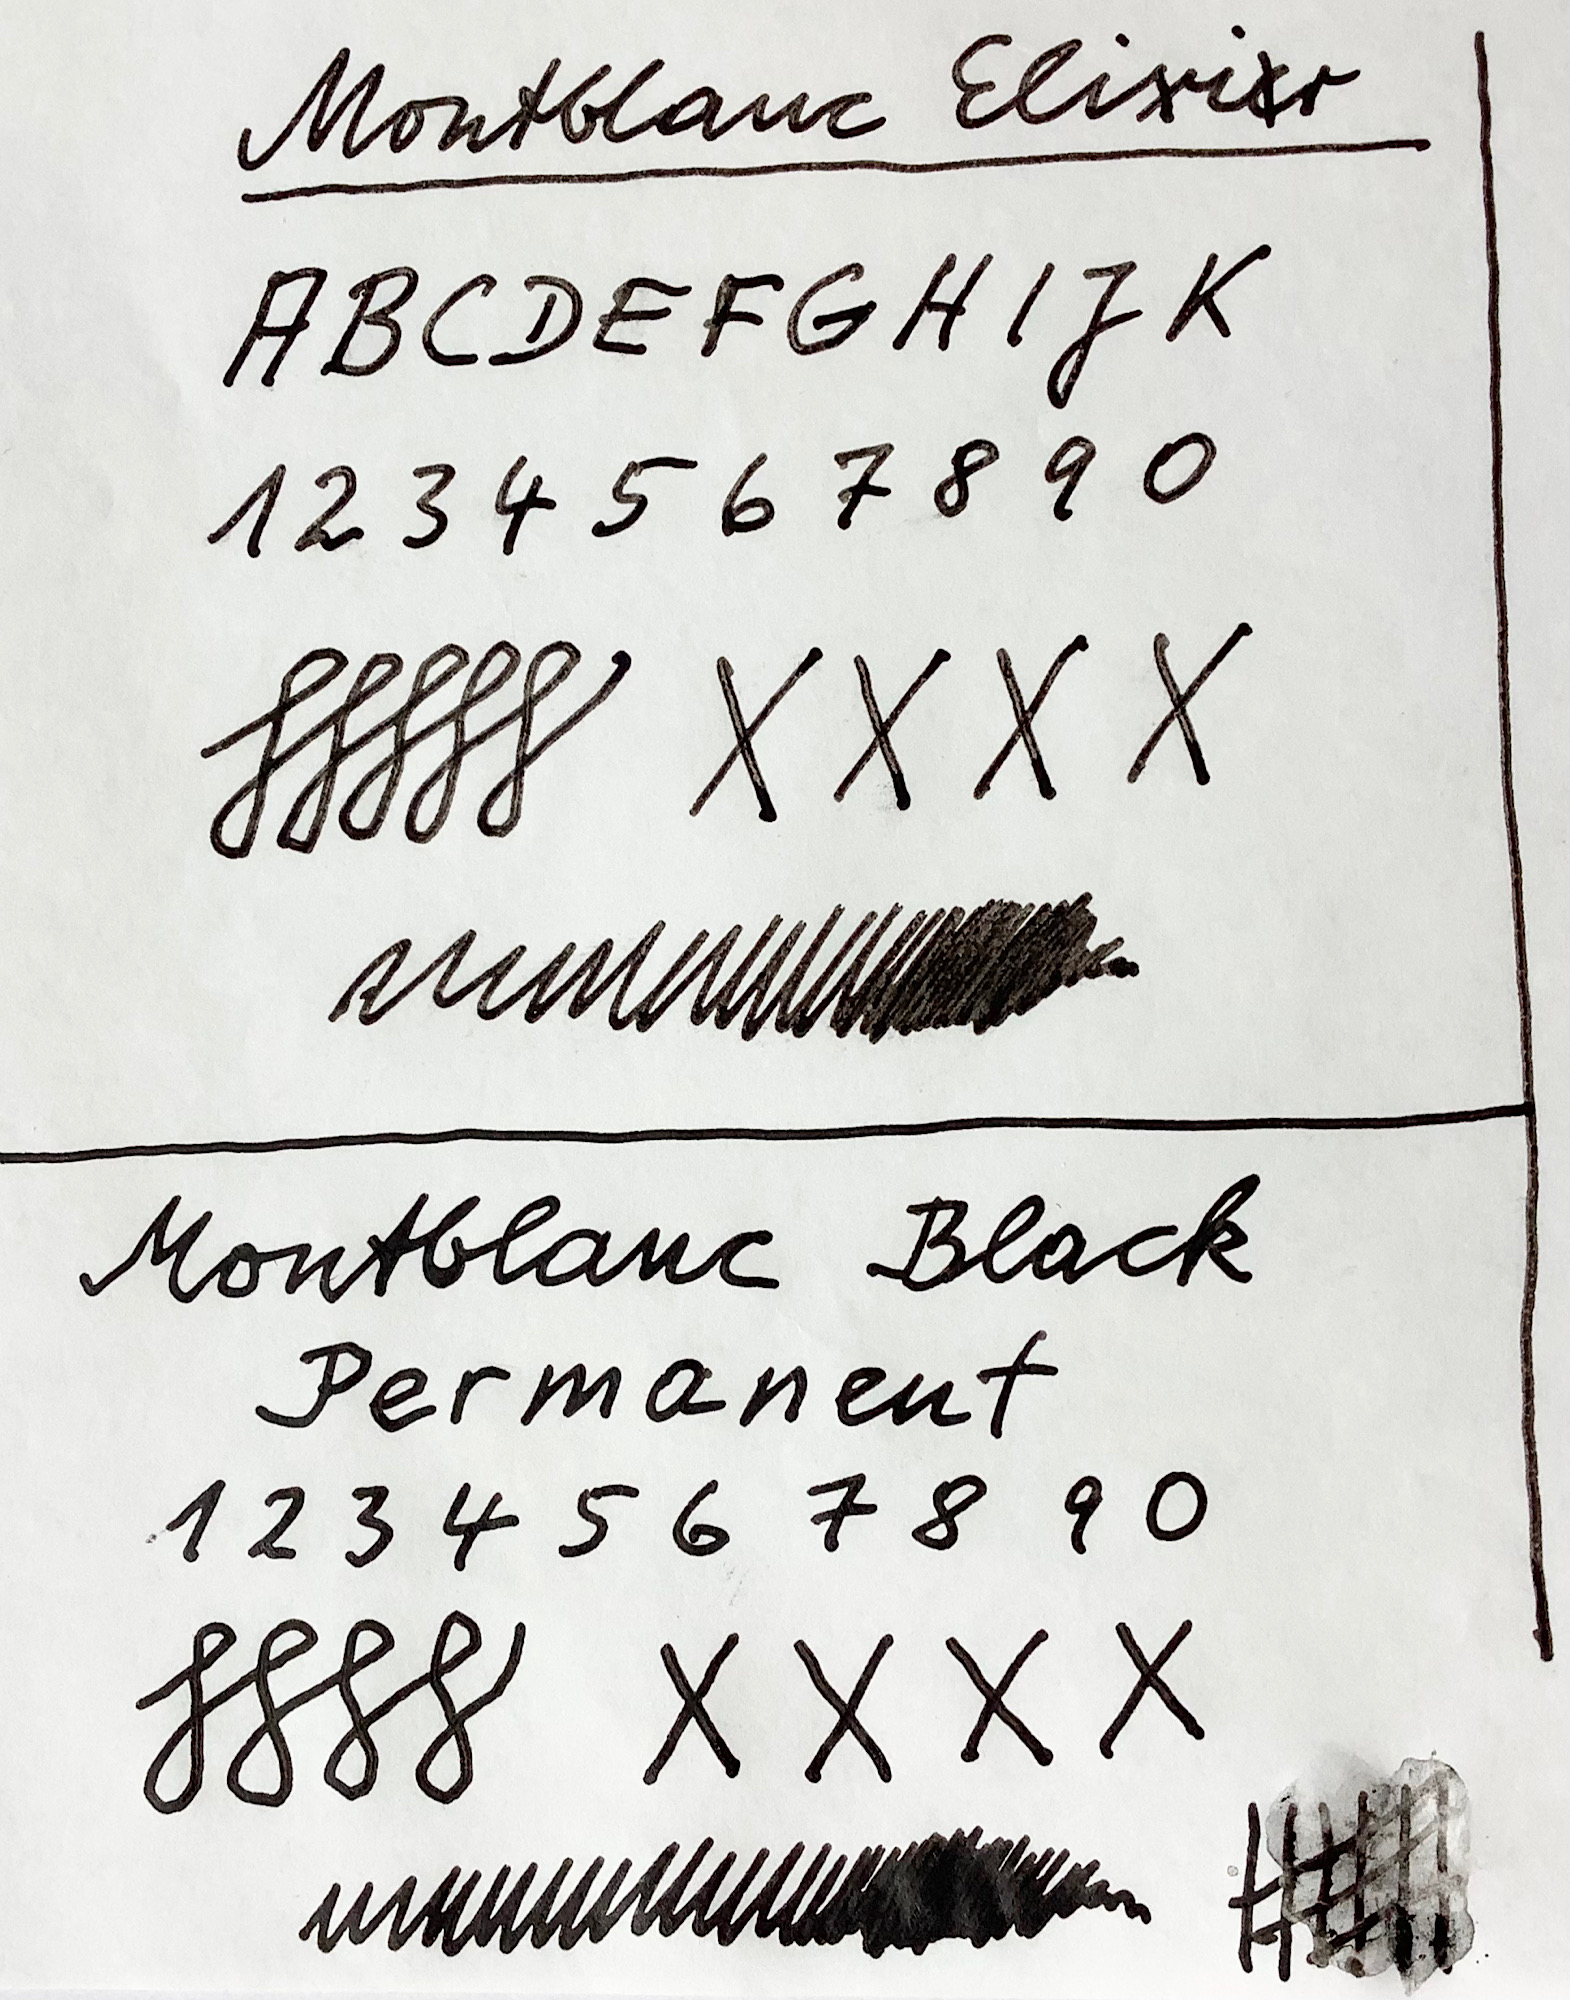 Montblanc Elixier
A B C D E F G H I J K
1 2 3 4 5 6 7 8 9 0
X X X X
Montblanc Black
Permanent
1 2 3 4 5 6 7 8 9 0
X X X X